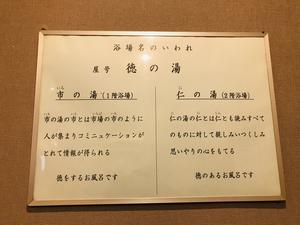 浴場名のいわれ
屋号 徳の湯
市の湯(1階浴場)
市の湯の市とは市場の市のように
人が集まりコミニュケーションが
とれて情報が得られる
徳をするお風呂です
仁の湯(2階浴場)
仁の湯の仁とは仁とも読みすべて
のものに対して親しみいつくしみ
思いやりの心をもてる
徳のあるお風呂です